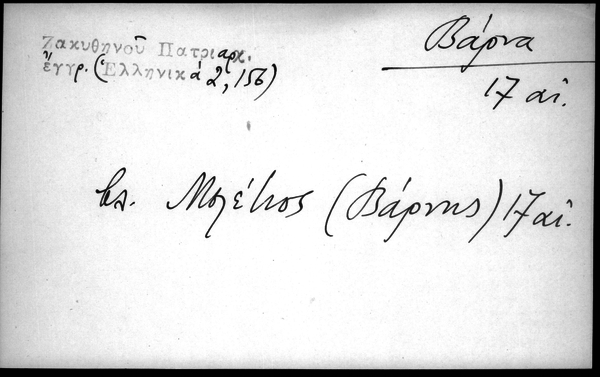 Ζακυθηνοῦ Πατριαρχ.
ἔγγρ. (Ἑλληνικά 2, 156)
Βάρνα
17 αἰ.
βλ. Μελέτιος (Βάρνης) 17 αἰ.